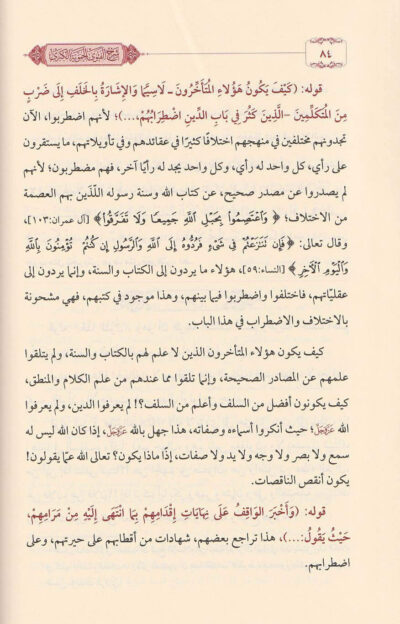 ٨٤
شرح الفتوى الحموية الكبرى
قوله: (كَيْفَ يَكُونُ هَؤُلاءِ الْمُتَأَخِّرُونَ ـ لَاسِيَّمَا وَالإِشَارَةُ بِالْخَلَفِ إِلَى ضَرْبٍ
مِنَ الْمُتَكَلِّمِينَ -الَّذِينَ كَثُرَ فِي بَابِ الدِّينِ اضْطِرَابُهُمْ،...)؛ لأنهم اضطربوا، الآن
تجدونهم مختلفين في منهجهم اختلافًا كثيرًا في عقائدهم وفي تأويلاتهم، ما يستقرون
على رأي، كل واحد له رأي، وكل واحد يجد له رأيًا آخر، فهم مضطربون؛ لأنهم
لم يصدروا عن مصدر صحيح، عن كتاب الله وسنة رسوله اللَّذَين بهم العصمة
من الاختلاف؛ ﴿وَاعْتَصِمُوا بِحَبْلِ اللَّهِ جَمِيعًا وَلَا تَفَرَّقُوا﴾ [آل عمران: ١٠٣]،
وقال تعالى: ﴿فَإِن تَنَازَعْتُمْ فِي شَيْءٍ فَرُدُّوهُ إِلَى اللَّهِ وَالرَّسُولِ إِن كُنتُمْ تُؤْمِنُونَ بِاللَّهِ
وَالْيَوْمِ الْآخِرِ﴾ [النساء: ٥٩]، هؤلاء ما يردون إلى الكتاب والسنة، وإنما يردون إلى
عقليَّاتهم، فاختلفوا واضطربوا فيما بينهم، وهذا موجود في كتبهم، فهي مشحونة
بالاختلاف والاضطراب في هذا الباب.
كيف يكون هؤلاء المتأخرون الذين لا علم لهم بالكتاب والسنة، ولم يتلقوا
علمهم عن المصادر الصحيحة، وإنما تلقوا مما عندهم من علم الكلام والمنطق،
كيف يكونون أفضل من السلف وأعلم من السلف؟! لم يعرفوا الدين، ولم يعرفوا
الله عَزَّوَجَلَّ؛ حيث أنكروا أسماءه وصفاته، هذا جهل بالله عَزَّوَجَلَّ، إذا كان الله ليس له
سمع ولا بصر ولا وجه ولا يد ولا صفات، إذًا ماذا يكون؟ تعالى الله عمّا يقولون!
يكون أنقص الناقصات.
قوله: (وَأَخْبَرَ الْوَاقِفُ عَلَى نِهَايَاتِ إِقْدَامِهِمْ بِمَا انْتَهَى إِلَيْهِ مِنْ مَرَامِهِمْ،
حَيْثُ يَقُولُ:...)، هذا تراجع بعضهم، شهادات من أقطابهم على حيرتهم، وعلى
اضطرابهم.